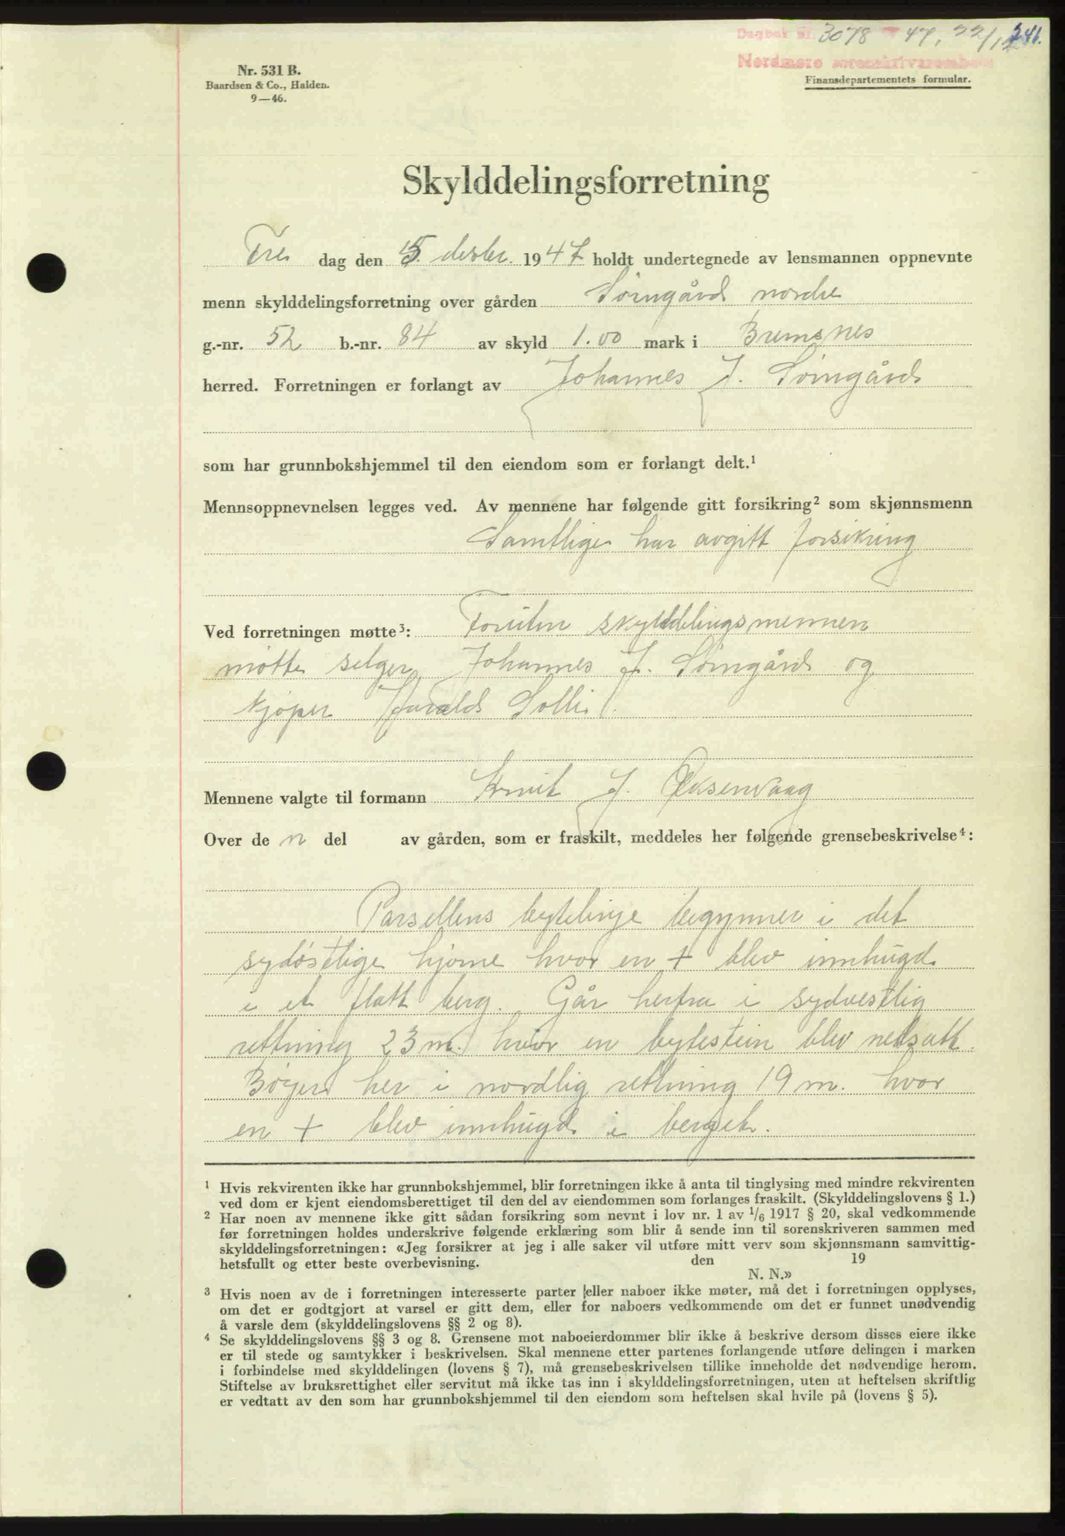 Dagbok nr. 3078 47, 22/12 241.
Nordmøre sorenskriverembete
Nr. 531 B.
Baardsen & Co., Halden.
9—46.
Finansdepartementets formular.
Skylddelingsforretning
Fre dag den 5. desbr. 1947 holdt undertegnede av lensmannen oppnevnte
menn skylddelingsforretning over gården Sørngård nordre
g.-nr. 52 b.-nr. 84 av skyld 1.00 mark i Bremsnes
herred. Forretningen er forlangt av Johannes J. Sørngård
som har grunnbokshjemmel til den eiendom som er forlangt delt.¹
Mennsoppnevnelsen legges ved. Av mennene har følgende gitt forsikring² som skjønnsmenn
Samtlige har avgitt forsikring
Ved forretningen møtte³: Foruten skylddelingsmennene
møtte selger, Johannes J. Sørngård og
kjøper Harald Solli.
Mennene valgte til formann Knut J. Øksenvaag
Over de n del av gården, som er fraskilt, meddeles her følgende grensebeskrivelse⁴:
Parsellens bytelinje begynner i det
sydøstlige hjørne hvor en + blev innhugd
i et flatt berg. Går herfra i sydvestlig
rettning 23 m. hvor en bytestein blev nedsatt.
Bøyer her i nordlig rettning 19 m. hvor
en + blev innhugd i berget.
¹ Hvis rekvirenten ikke har grunnbokshjemmel, blir forretningen ikke å anta til tinglysing med mindre rekvirenten
ved dom er kjent eiendomsberettiget til den del av eiendommen som forlanges fraskilt. (Skylddelingslovens § 1.)
² Har noen av mennene ikke gitt sådan forsikring som nevnt i lov nr. 1 av 1/6 1917 § 20, skal vedkommende
før forretningen holdes underskrive følgende erklæring som blir å sende inn til sorenskriveren sammen med
skylddelingsforretningen: «Jeg forsikrer at jeg i alle saker vil utføre mitt verv som skjønnsmann samvittig-
hetsfullt og etter beste overbevisning. den 19
N. N.»
³ Hvis noen av de i forretningen interesserte parter eller naboer ikke møter, må det i forretningen opplyses,
om det er godtgjort at varsel er gitt dem, eller for naboers vedkommende om det er funnet unødvendig
å varsle dem (skylddelingslovens §§ 2 og 8).
⁴ Se skylddelingslovens §§ 3 og 8. Grensene mot naboeierdommer blir ikke å beskrive dersom disses eiere ikke
er til stede og samtykker i beskrivelsen. Skal mennene etter partenes forlangende utføre delingen i marken
i forbindelse med skylddelingen (lovens § 7), må grensebeskrivelsen tillike inneholde det nødvendige herom.
Stiftelse av bruksrettighet eller servitut må ikke tas inn i skylddelingsforretningen, uten at heftelsen skriftlig
er vedtatt av den som har grunnbokshjemmel til den eiendom som heftelsen skal hvile på (lovens § 5).